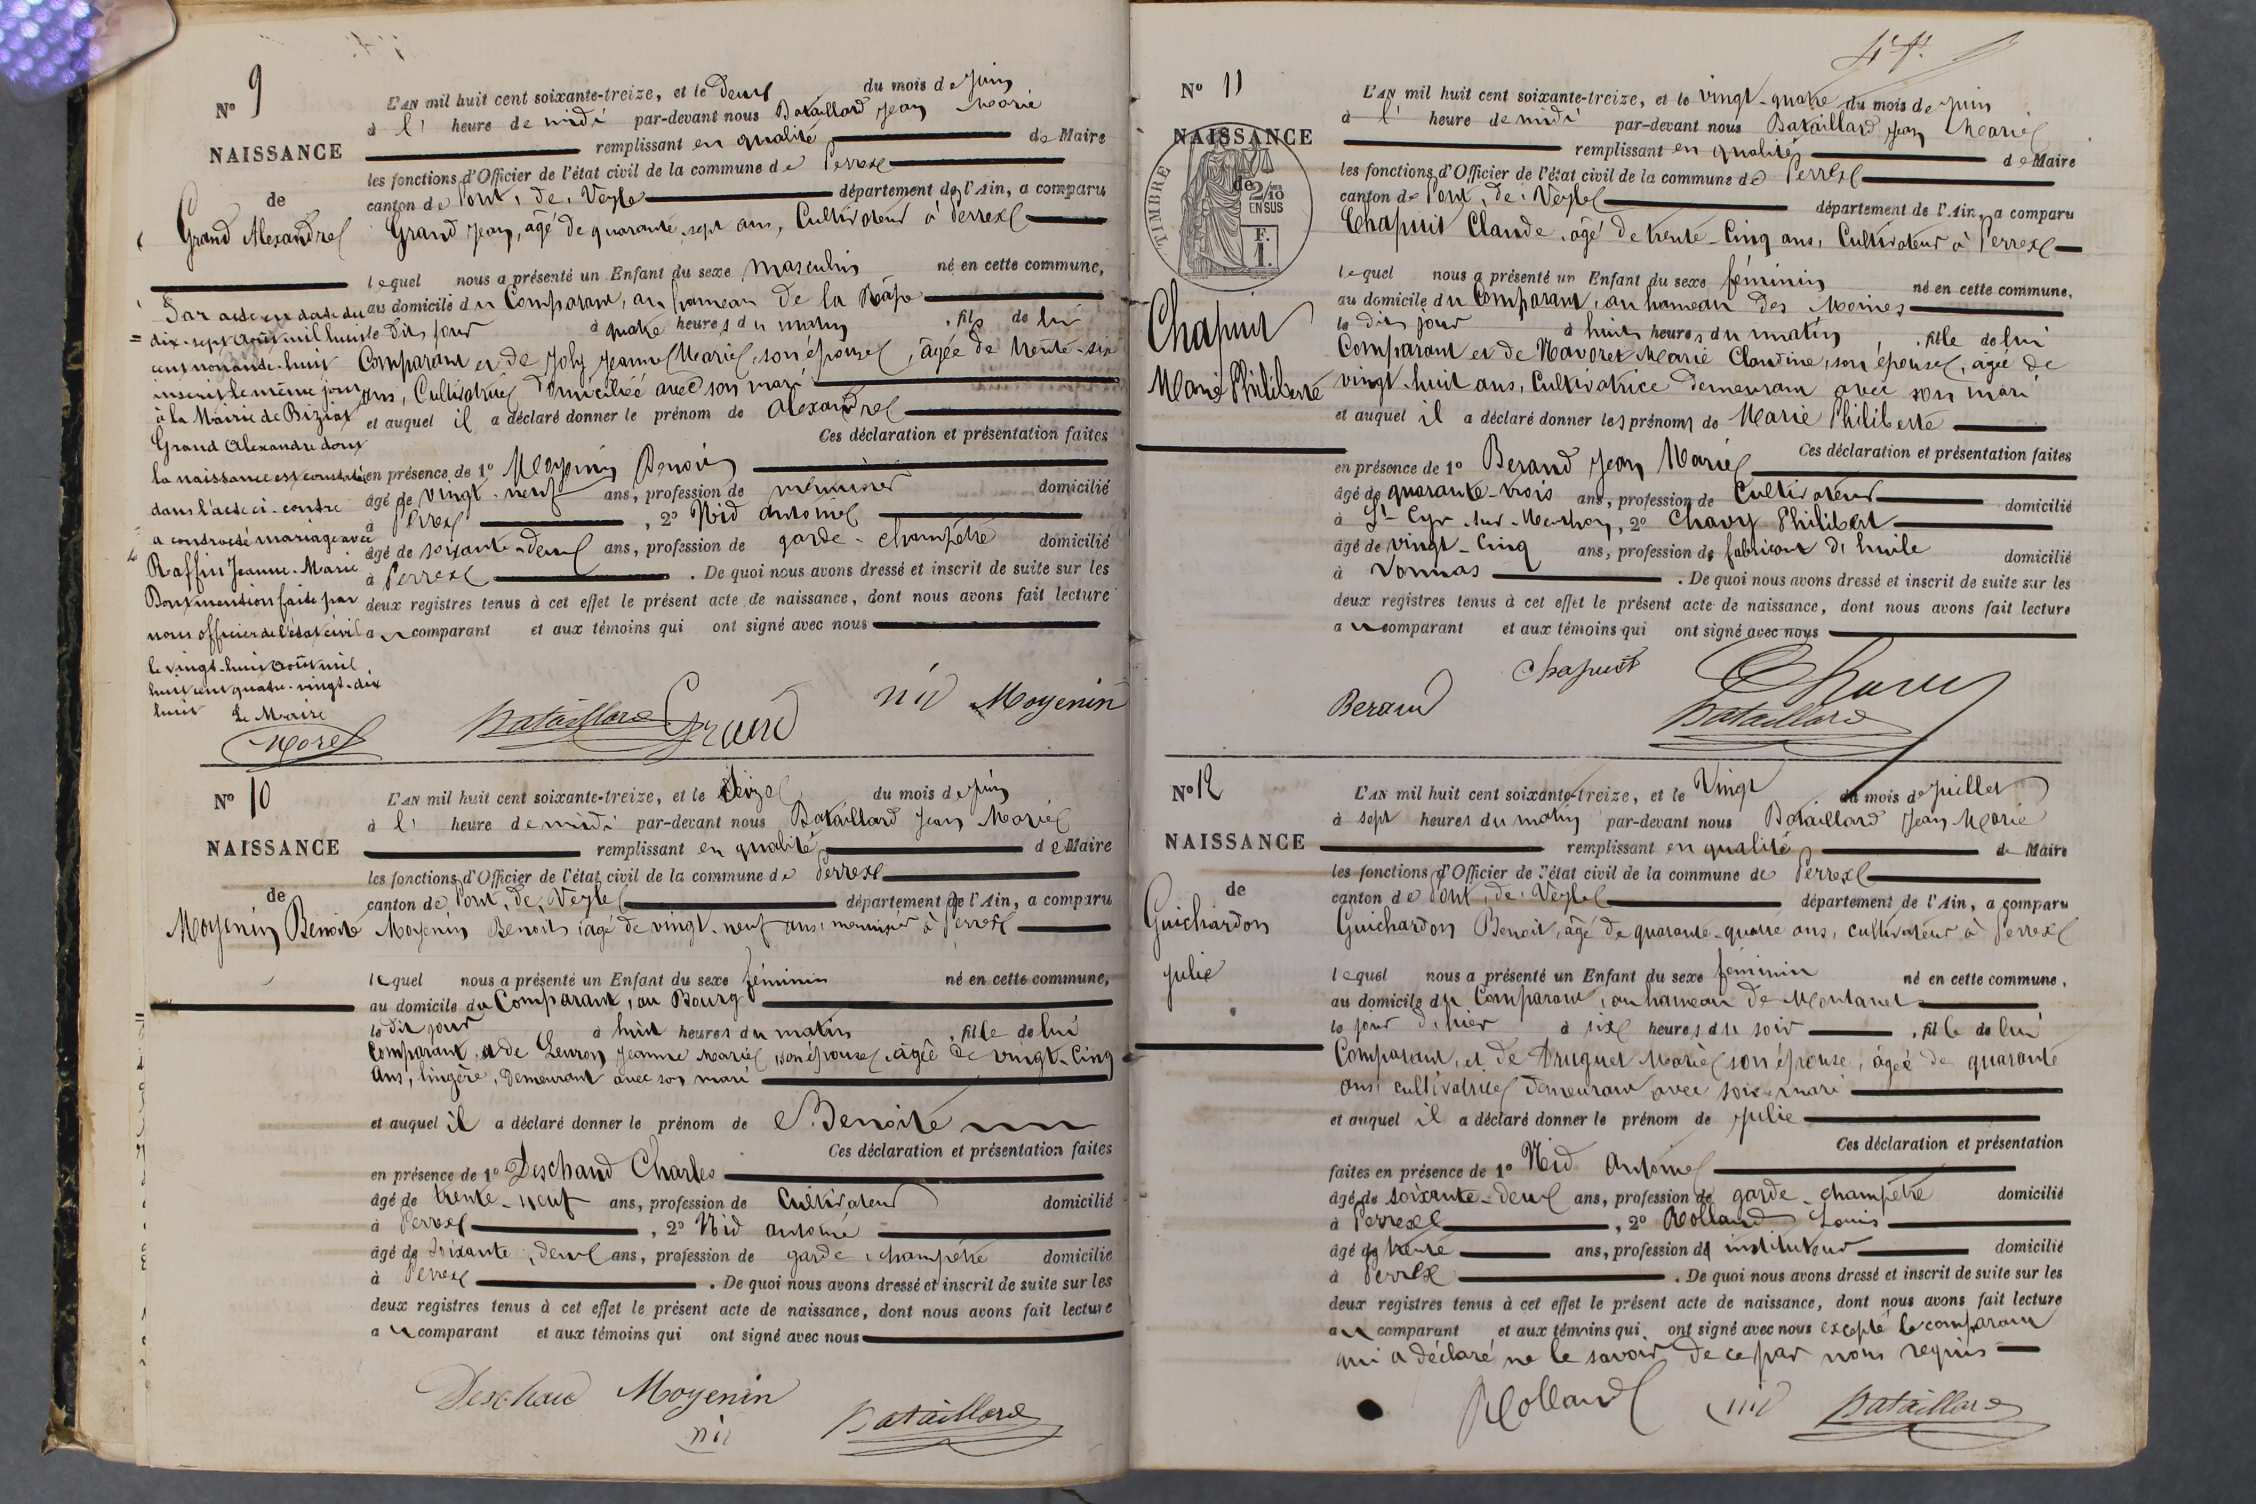 N° 9
NAISSANCE
de
Grand Alexandre
Par acte en date du
dix-sept Août mil huit
cent nonante-huit
inscrit le même jour
à la Mairie de Biziat
Grand Alexandre dont
la naissance est constatée
dans l'acte ci-contre
a contracté mariage avec
Raffin Jeanne-Marie
Dont mention faite par
nous officier de l'état civil
le vingt-huit août mil
huit cent quatre-vingt-dix
huit Le Maire
Morel
L'AN mil huit cent soixante-treize, et le Deux du mois de Juin
à l' heure de midi par-devant nous Bataillard Jean Marie
remplissant en qualité de Maire
les fonctions d'Officier de l'état civil de la commune de Perrex
canton de Pont, de, Veyle département de l'Ain, a comparu
Grand Jean, âgé de quarante-sept ans, Cultivateur à Perrex
lequel nous a présenté un Enfant du sexe masculin né en cette commune,
au domicile du Comparant, au hameau de la
le dit jour à quatre heures du matin, fils de lui
Comparant et de Joly Jeanne Marie, son épouse, âgée de trente-six
ans, Cultivatrice, Domiciliée avec son mari
et auquel il a déclaré donner le prénom de Alexandre
Ces déclaration et présentation faites
en présence de 1° Moyenin Benoit
âgé de vingt-neuf ans, profession de menuisier domicilié
à Perrex, 2° Nid Antoine
âgé de soixante-deux ans, profession de garde-champêtre domicilié
à Perrex. De quoi nous avons dressé et inscrit de suite sur les
deux registres tenus à cet effet le présent acte de naissance, dont nous avons fait lecture
au comparant et aux témoins qui ont signé avec nous
nid Moyenin
Bataillard Grand
N° 10
NAISSANCE
de
Moyenin Benoite
L'AN mil huit cent soixante-treize, et le Seize du mois de Juin
à l' heure de midi par-devant nous Bataillard Jean Marie
remplissant en qualité de Maire
les fonctions d'Officier de l'état civil de la commune de Perrex
canton de Pont, de, Veyle département de l'Ain, a comparu
Moyenin Benoit, âgé de vingt-neuf ans, menuisier à Perrex
lequel nous a présenté un Enfant du sexe féminin né en cette commune,
au domicile du Comparant, au Bourg
le dit jour à huit heures du matin, fille de lui
Comparant, et de Jeanne Marie, son épouse, âgée de vingt-cinq
ans, lingère, Demeurant avec son mari
et auquel il a déclaré donner le prénom de Benoite
Ces déclaration et présentation faites
en présence de 1° Deschaud Charles
âgé de trente-neuf ans, profession de Cultivateur domicilié
à Perrex, 2° Nid Antoine
âgé de soixante, deux ans, profession de garde, champêtre domicilié
à Perrex. De quoi nous avons dressé et inscrit de suite sur les
deux registres tenus à cet effet le présent acte de naissance, dont nous avons fait lecture
au comparant et aux témoins qui ont signé avec nous
Deschaud Moyenin
nid Bataillard
N° 11
NAISSANCE
de
TIMBRE
2/10 EN SUS
F. 1.
Chapuit
Marie Philiberte
L'AN mil huit cent soixante-treize, et le vingt-quatre du mois de Juin
à l' heure de midi par-devant nous Bataillard Jean Marie
remplissant en qualité de Maire
les fonctions d'Officier de l'état civil de la commune de Perrex
canton de Pont, de, Veyle département de l'Ain, a comparu
Chapuit Claude, âgé de trente-cinq ans, Cultivateur à Perrex
lequel nous a présenté un Enfant du sexe féminin né en cette commune,
au domicile du Comparant, au hameau des Moines
le dit jour à huit heures du matin, fille de lui
Comparant et de Navoret Marie Claudine, son épouse, âgée de
vingt-huit ans, Cultivatrice demeurant avec son mari
et auquel il a déclaré donner les prénoms de Marie Philiberte
Ces déclaration et présentation faites
en présence de 1° Beraud Jean Marie
âgé de quarante-trois ans, profession de Cultivateur domicilié
à St-Cyr-sur-Menthon, 2° Chavy Philibert
âgé de vingt-cinq ans, profession de fabricant d'huile domicilié
à Vonnas. De quoi nous avons dressé et inscrit de suite sur les
deux registres tenus à cet effet le présent acte de naissance, dont nous avons fait lecture
au comparant et aux témoins qui ont signé avec nous
Chapuit Chavy
Beraud Bataillard
N° 12
NAISSANCE
de
Guichardon
Julie
L'AN mil huit cent soixante-treize, et le Vingt du mois de Juillet
à sept heures du matin par-devant nous Bataillard Jean Marie
remplissant en qualité de Maire
les fonctions d'Officier de l'état civil de la commune de Perrex
canton de Pont, de, Veyle département de l'Ain, a comparu
Guichardon Benoit, âgé de quarante-quatre ans, cultivateur à Perrex
lequel nous a présenté un Enfant du sexe féminin né en cette commune,
au domicile du Comparant, au hameau de Montanet
le jour d'hier à six heures du soir, fille de lui
Comparant, et de Druguet Marie, son épouse, âgée de quarante
ans, cultivatrice, demeurant avec son mari
et auquel il a déclaré donner le prénom de Julie
Ces déclaration et présentation
faites en présence de 1° Nid Antoine
âgé de soixante-deux ans, profession de garde-champêtre domicilié
à Perrex, 2° Rolland Louis
âgé de trente ans, profession d' instituteur domicilié
à Perrex. De quoi nous avons dressé et inscrit de suite sur les
deux registres tenus à cet effet le présent acte de naissance, dont nous avons fait lecture
au comparant et aux témoins qui ont signé avec nous excepté le comparant
qui a déclaré ne le savoir de ce par nous requis
Rolland nid Bataillard